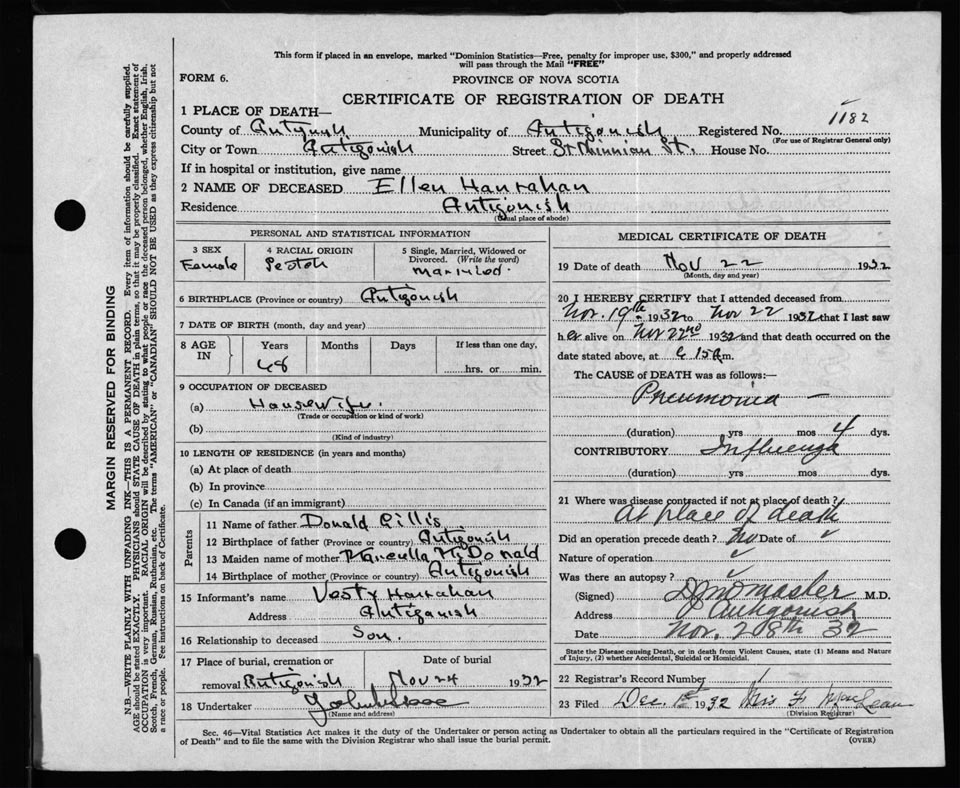 This form if placed in an envelope, marked "Dominion Statistics—Free, penalty for improper use, $300," and properly addressed
will pass through the Mail "FREE"
FORM 6.
PROVINCE OF NOVA SCOTIA
CERTIFICATE OF REGISTRATION OF DEATH
1 PLACE OF DEATH—
County of Municipality of Antigonish Registered No. 1182
(For use of Registrar General only)
City or Town Antigonish Street St Ninnian St. House No.
If in hospital or institution, give name
2 NAME OF DECEASED Ellen Hanrahan
Residence Antigonish
(Usual place of abode)
PERSONAL AND STATISTICAL INFORMATION
3 SEX 4 RACIAL ORIGIN 5 Single, Married, Widowed or
Divorced. (Write the word)
Female
6 BIRTHPLACE (Province or country) Antigonish
7 DATE OF BIRTH (month, day and year)
8 AGE IN Years Months Days If less than one day,
68 hrs. or min.
9 OCCUPATION OF DECEASED
(a) Housewife.
(Trade or occupation or kind of work)
(b)
(Kind of industry)
10 LENGTH OF RESIDENCE (in years and months)
(a) At place of death
(b) In province
(c) In Canada (if an immigrant)
Parents
11 Name of father Donald Gillis
12 Birthplace of father (Province or country) Antigonish
13 Maiden name of mother McDonald
14 Birthplace of mother (Province or country) Antigonish
15 Informant's name Vesty Hanrahan
Address Antigonish
16 Relationship to deceased Son.
17 Place of burial, cremation or Date of burial
removal Antigonish Nov 24 1932
18 Undertaker
(Name and address)
MEDICAL CERTIFICATE OF DEATH
19 Date of death Nov 22 1932
(Month, day and year)
20 I HEREBY CERTIFY that I attended deceased from
Nov. 19th 1932 to Nov 22 1932 that I last saw
her alive on Nov 22nd 1932 and that death occurred on the
date stated above, at m.
The CAUSE of DEATH was as follows:—
Pneumonia —
(duration) yrs mos 4 dys.
CONTRIBUTORY Influenza
(duration) yrs mos dys.
21 Where was disease contracted if not at place of death?
At place of death
Did an operation precede death? No Date of
Nature of operation
Was there an autopsy?
(Signed) M.D.
Address Antigonish
Date Nov. 28th 32
State the Disease causing Death, or in death from Violent Causes, state (1) Means and Nature
of Injury, (2) whether Accidental, Suicidal or Homicidal.
22 Registrar's Record Number
23 Filed Dec. 1st 1932 Miss F. MacLean
(Division Registrar)
Sec. 46—Vital Statistics Act makes it the duty of the Undertaker or person acting as Undertaker to obtain all the particulars required in the "Certificate of Registration
of Death" and to file the same with the Division Registrar who shall issue the burial permit.
(OVER)
MARGIN RESERVED FOR BINDING
N.B.—WRITE PLAINLY WITH UNFADING INK—THIS IS A PERMANENT RECORD. Every item of information should be carefully supplied.
AGE should be stated EXACTLY. PHYSICIANS should STATE CAUSE OF DEATH in plain terms, so that it may be properly classified. Exact statement of
OCCUPATION is very important. RACIAL ORIGIN will be described by stating to what people or race the deceased person belonged, whether English, Irish,
Scotch, French, German, Russian, Ruthenian, etc. The terms "AMERICAN" or "CANADIAN" SHOULD NOT BE USED as they express citizenship but not
a race or people. See instructions on back of Certificate.